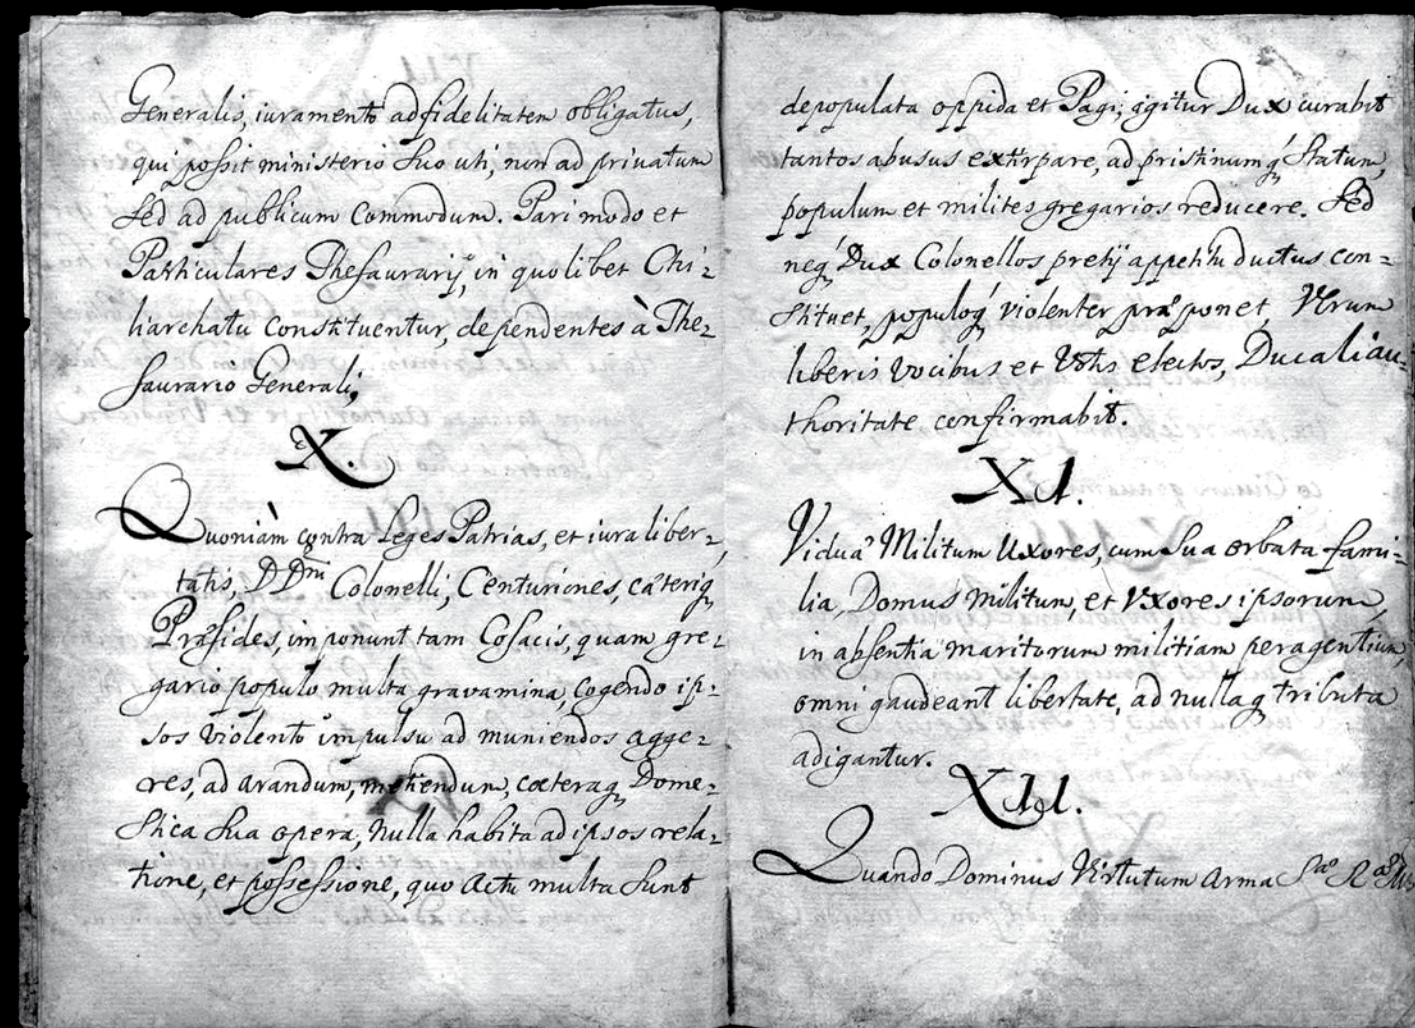 Generalis, iuramento ad fidelitatem obligatus,
qui possit ministerio suo uti, non ad priuatum
sed ad publicum commodum. Pari modo et
Particulares Thesaurarij, in quolibet Chi=
liarchatu constituentur, dependentes à The=
saurario Generali,
X.
Quoniàm contra Leges Patrias, et iura liber=
tatis, DDni Colonelli, Centuriones, cæteriq
Præsides, imponunt tam Cosacis, quam gre=
gario populo multa gravamina, cogendo ip=
sos violento impulsu ad muniendos agge=
res, ad arandum, metiendum, cæteraq Dome=
stica sua opera, nulla habita ad ipsos rela=
tione, et possessione, quo actu multa sunt
depopulata oppida et Pagi; igitur Dux curabit
tantos abusus extirpare, ad pristinumq́ statum,
populum et milites gregarios reducere. Sed
neq́ Dux Colonellos pretij appetitu ductus con=
stituet, populoq́ violenter præponet, Verum
liberis vocibus et Votis electos, Ducali au=
thoritate confirmabit.
XI.
Viduæ Militum Uxores, cum sua orbata fami=
lia, Domus Militum, et Vxores ipsorum,
in absentia maritorum militiam peragentium,
omni gaudeant libertate, ad nullaq tributa
adigantur.
XII.
Quando Dominus Virtutum arma